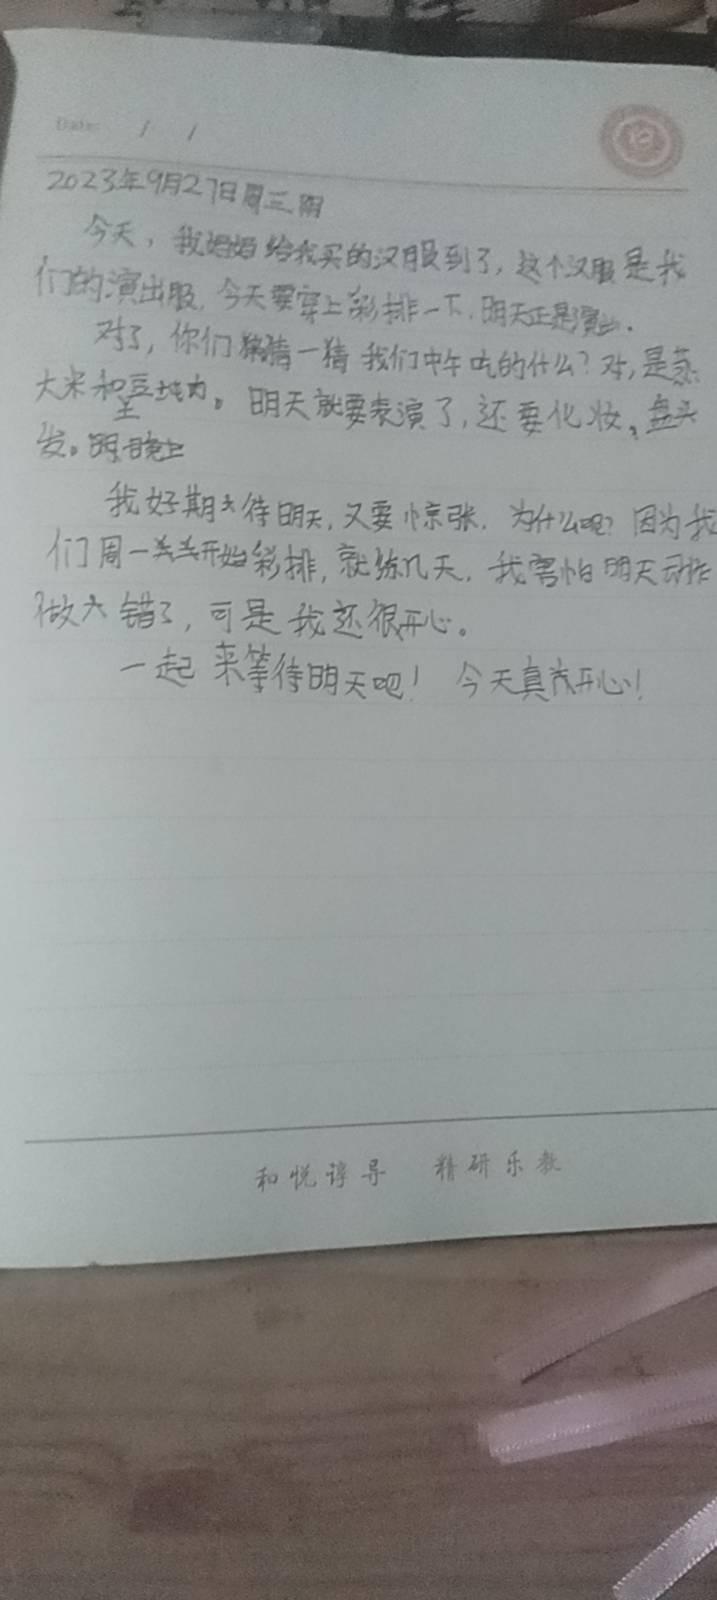 Date: / /
2023年9月27日周三阴
今天，我妈妈给我买的汉服到了，这个汉服是我
们的演出服，今天要穿上彩排一下，明天正是演出。
对了，你们猜一猜我们中午吃的什么？对，是蒸
大米和豆炖肉。明天就要表演了，还要化妆、盘头
发。明晚上
我好期待明天，又要惊张，为什么呢？因为我
们周一开始彩排，就练几天，我害怕明天动作
做错了，可是我还很开心。
一起来等待明天吧！今天真开心！
和悦谆导 精研乐教